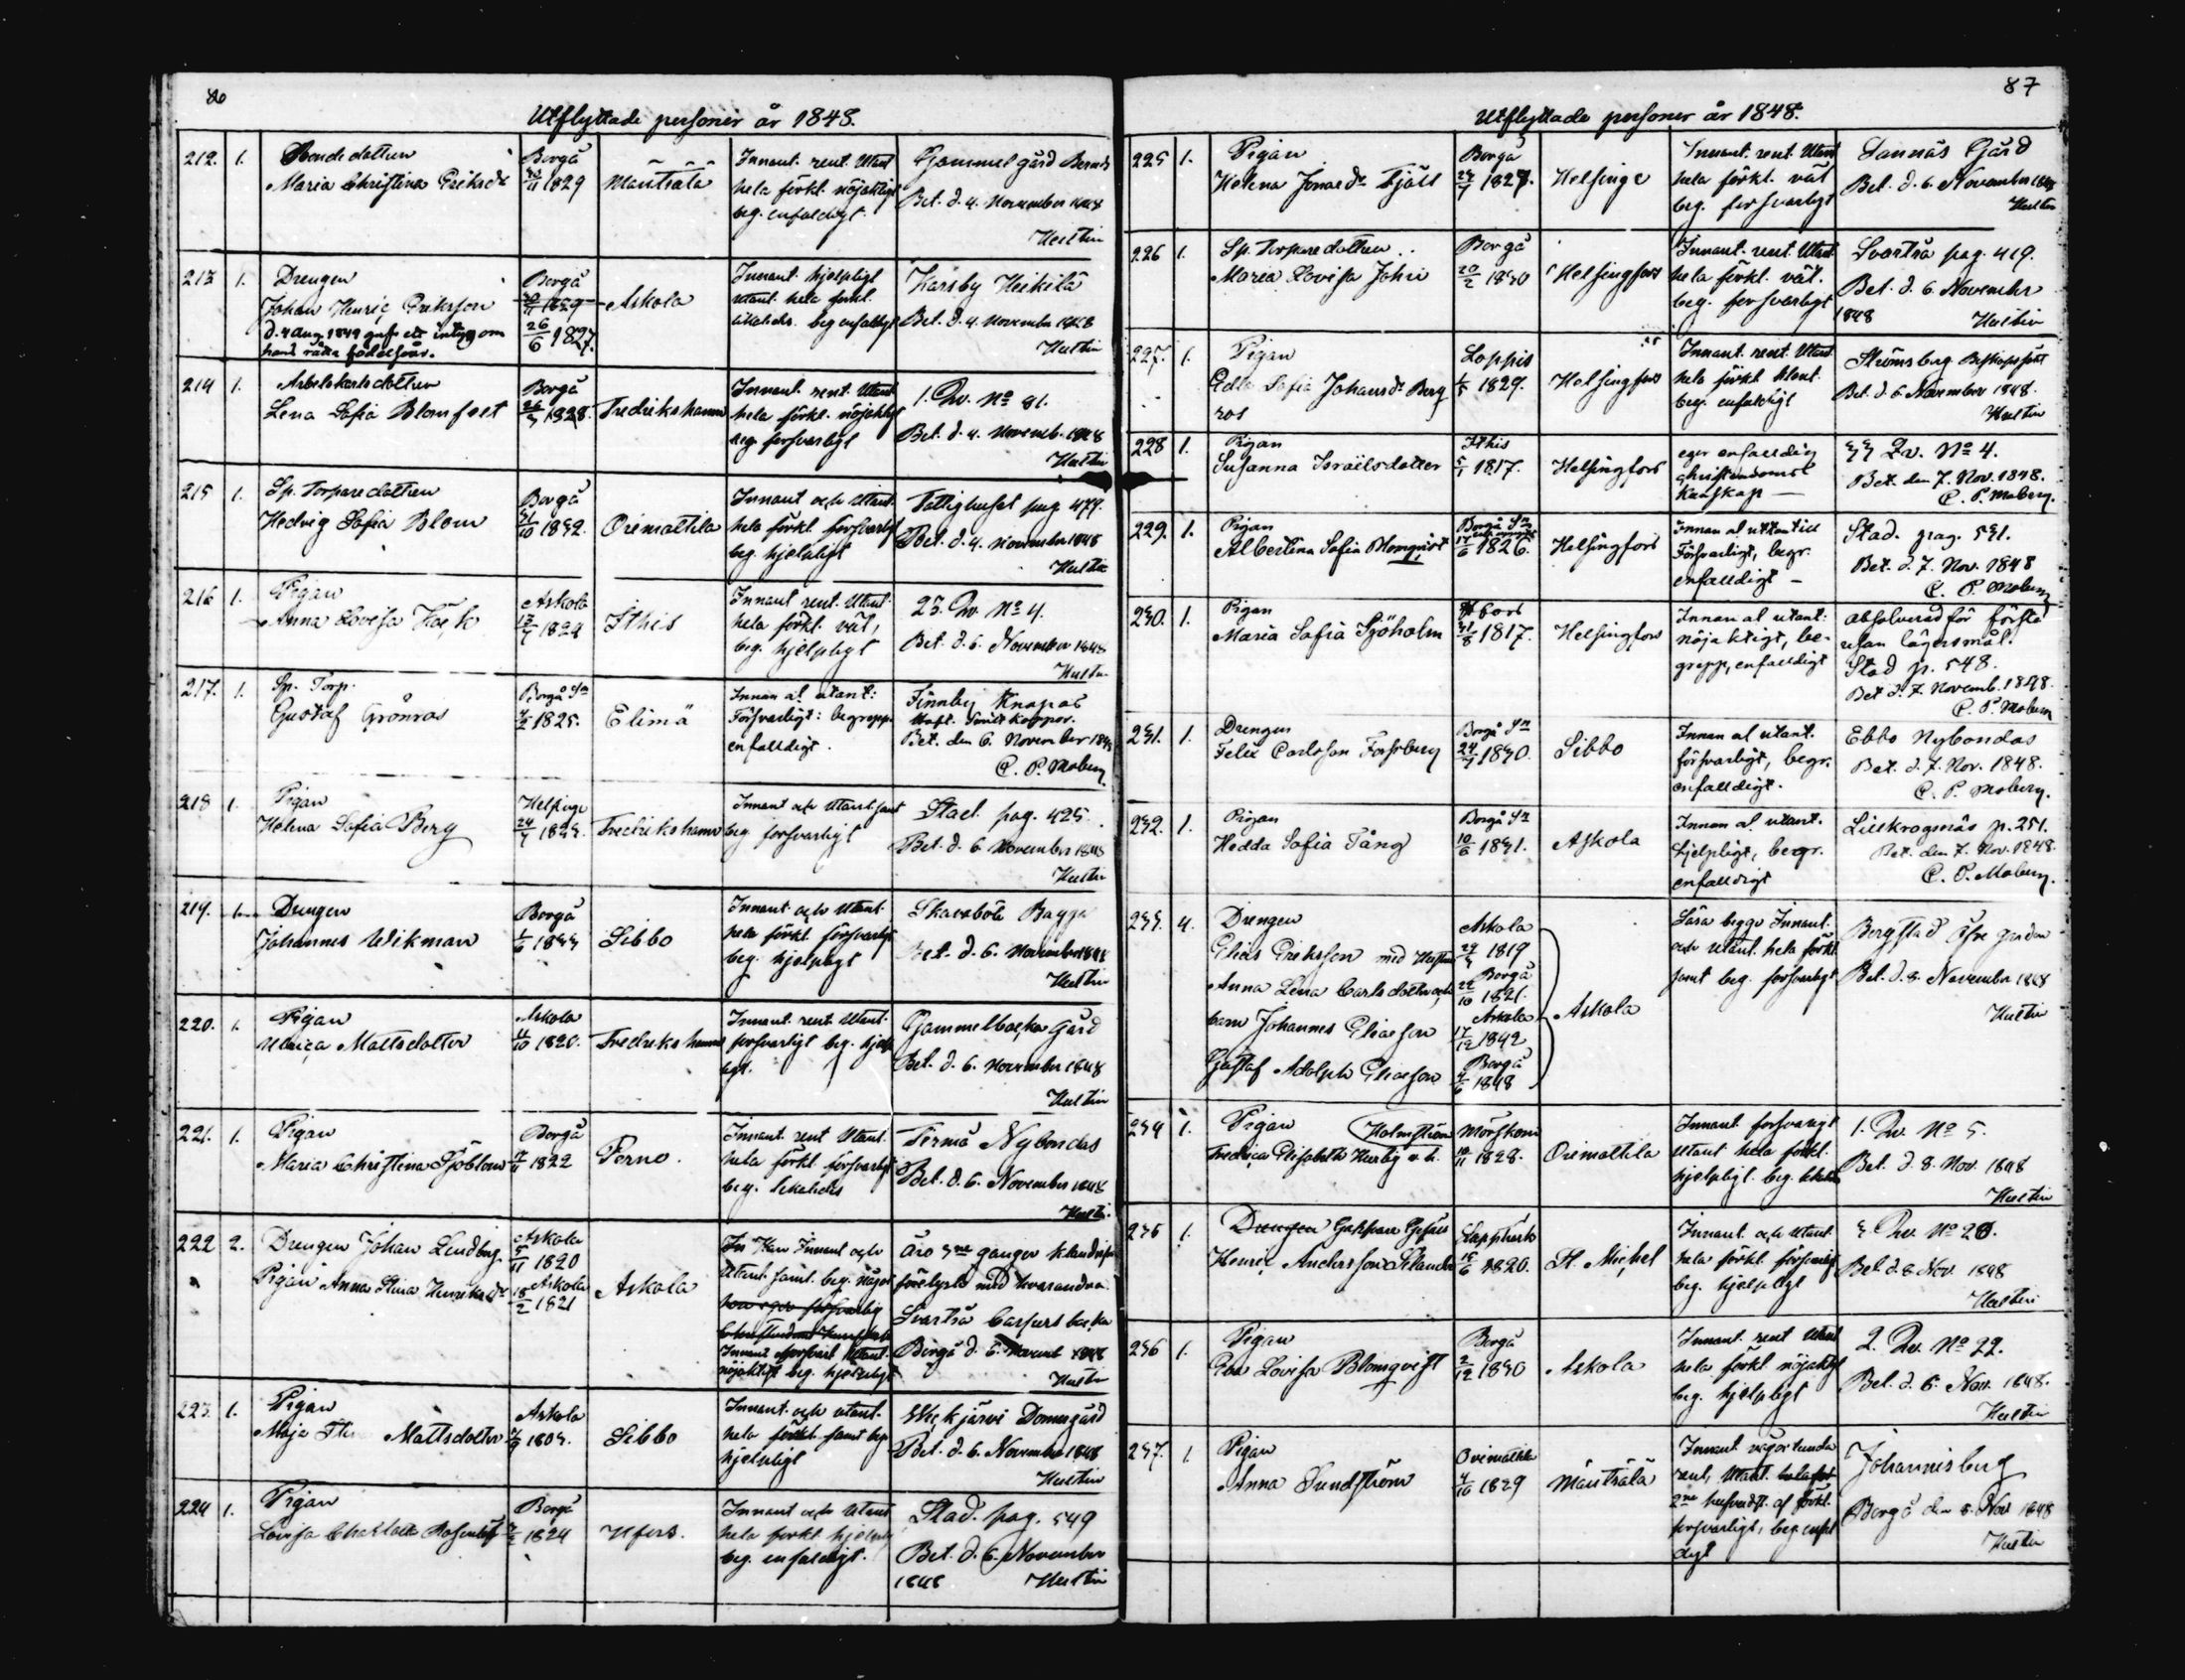 86
Utflyttade personer år 1848.
212. 1. Bondedottren Borgå Innant. rent. Utant Gammelgård
Maria Christina Eriksdr 1829 Mäntsälä hela förkl. nöjaktigt Bet. d. 4. November 1848
beg. enfaldigt. Hustin
213 1. Drengen Borgå Innant. hjelpligt Karsby Heikilä
Johan Henric Eriksson 1829 Askola utant. hela förkl.
d. 4 aug. 1849 gafs ett intyg om 26/6 1827. beg. enfaldigt Bet. d. 4. November 1848
hans rätta födelseår. Hustin
214 1. Borgå Innant. rent. Utant 1. Qv. No 81.
Lena Sofia Blomfelt 1828. Fredrikshamn hela förkl. nöjaktigt Bet. d. 4. Novemb. 1848
beg. försvarligt Hustin
215 1. Sp. Torparedottren Borgå Innant och Utant. Fattighuset pag 479.
Hedvig Sofia Blom 1832. Orimattila hela förkl. försvarligt Bet. d. 4. November 1848
beg. hjelpligt Hustin
216 1. Pigan Askola Innant rent. Utant. 23. Qv. No 4.
Anna Lovisa Höök 1824 Ithis hela förkl. väl, Bet. d. 6. November 1848
beg. hjelpligt Hustin
217. 1. Sp. Torp. Borgå Sn Innan al utant: Finnby Knapas
Gustaf Grönros 1825. Elimä Försvarligt: begrepp.
enfalldigt. Bet. den 6. November 1848
C. P. Moberg
218 1. Pigan Helsinge Innant och Utant samt Stad. pag. 425.
Helena Sofia Berg 24/7 Fredrikshamn beg. försvarligt Bet. d. 6 November 1848
Hustin
219. 1. Drengen Borgå Innant och Utant. Skavaböle Bagga
Johannes Wikman 1/6 1833 Sibbo hela förkl. försvarligt Bet. d. 6. November 1848
beg. hjelpligt Hustin
220. 1. Pigan Askola Innant. rent. Utant. Gammelbacka Gård
Ulrica Mattsdotter 11/10 1820. Fredrikshamn försvarligt beg. hjelp- Bet. d. 6. November 1848
ligt. Hustin
221. 1. Pigan Borgå Innant. rent Utant. Tirmå Nybondas
Maria Christina Sjöblom 1822 Perno. hela förkl. försvarligt Bet. d. 6. November 1848
beg. likaledes Hustin
222 2. Drengen Johan Lindberg Askola Innant och äro 3ne gånger
5/11 1820 Utant. samt. beg. förelyste med hvarandra.
Pigan Anna Stina Henriksdr Askola Askola Svartså
18/2 1821 Innant försvarl Utant. Borgå d. 6. Novemb 1848
nöjaktigt beg. hjelpligt Hustin
223. 1. Pigan Askola Innant. och utant. Domargård
Maja Mattsdotter 1803. Sibbo hela förkl. samt beg. Bet. d. 6. November 1848
hjelpligt Hustin
224 1. Pigan Borgå Innant och Utant Stad. pag. 549
Lovisa Charlotta 1824 Hfors. hela förkl hjelpligt Bet. d. 6. November
beg. enfaldigt. 1848 Hustin
87
Utflyttade personer år 1848.
225 1. Pigan Borgå Innant. rent. Utant Sannäs Gård
Helena Jonaedr Fjäll 1827. Helsinge hela förkl. väl Bet. d. 6. November 1848
beg. försvarligt Hustin
226 1. Sp. Torparedottren Borgå Innant. rent Utant Svartså pag. 419.
Maria Lovisa John 20/2 1830 Helsingfors hela förkl. väl. Bet. d. 6. November
beg. försvarligt 1848 Hustin
227. 1. Pigan Loppis Innant. rent. Utant. Strömsberg
Edla Sofia Johansdr Berg 1829. Helsingfors hela förkl. Bet. d. 6. November 1848.
ros beg. enfaldigt Hustin
228 1. Pigan Ithis eger enfalldig 33 Qv. No 4.
Susanna Israëlsdotter 5/1 1817. Helsingfors christendoms Bet. den 7. Nov. 1848.
kunskap — C. P. Moberg.
229. 1. Pigan Borgå Sn Innan al utantill Stad. pag. 531.
Albertina Sofia Blomqvist 17/6 1826. Helsingfors Försvarligt, begr. Bet. d. 7. Nov. 1848
enfalldigt — C. P. Moberg
230. 1. Pigan Hfors Innan al utant: absolverad för första
Maria Sofia Sjöholm 31/8 1817. Helsingfors nöjaktigt, be- resan lägersmål.
grepp, enfalldigt Stad p. 548.
Bet d. 7. Novemb. 1848.
C. P. Moberg
231. 1. Drengen Borgå Sn Innan al utant. Ebbo Nybondas
Felix Carlsson Forsberg 24/7 1830. Sibbo försvarligt, begr. Bet. d. 7. Nov. 1848.
enfalldigt. C. P. Moberg.
232. 1. Pigan Borgå Sn Innan al utant. Lillkrognäs p. 251.
Hedda Sofia Tång 10/6 1831. Askola hjelpligt, begr. Bet. den 7. Nov. 1848.
enfalldigt C. P. Moberg.
233. 4. Drengen Askola Läsa begge Innant. Bergstad
Elias Eriksson med Hustru 1819 och Utant. hela förkl.
Borgå samt beg. försvarligt Bet. d. 8. November 1848
Anna Lena Carlsdotter och 22/10 1821. Hustin
Askola Askola
barn Johannes Eliasson 17/12 1842
Borgå
Gustaf Adolph Eliasson 1848
234 1. Pigan Holmström Mörskom Innant försvarligt 1. Qv. No 5.
Fredrica Elisabeth 1828. Orimattila Utant hela förkl. Bet. d. 8. Nov. 1848
hjelpligt. beg. Hustin
235 1. Drengen Innant. och Utant 3 Qv. No 20.
Henric Andersson 15/6 1820. St. Michel hela förkl. försvarligt Bet. d. 8. Nov. 1848
beg. hjelpligt Hustin
236 1. Pigan Borgå Innant. rent Utant 2. Qv. No 22.
Eva Lovisa Blomqvist 2/12 1830 Askola hela förkl. nöjaktigt Bet. d. 8. Nov. 1848.
beg. hjelpligt Hustin
237. 1. Pigan Orimattila Innant. någorlunda Johannisberg
Anna Sundström 4/10 1829 Mäntsälä rent, Utant.
2ne hufvudst. af förkl. Borgå den 8. Nov 1848
försvarligt, beg. enfal Hustin
digt